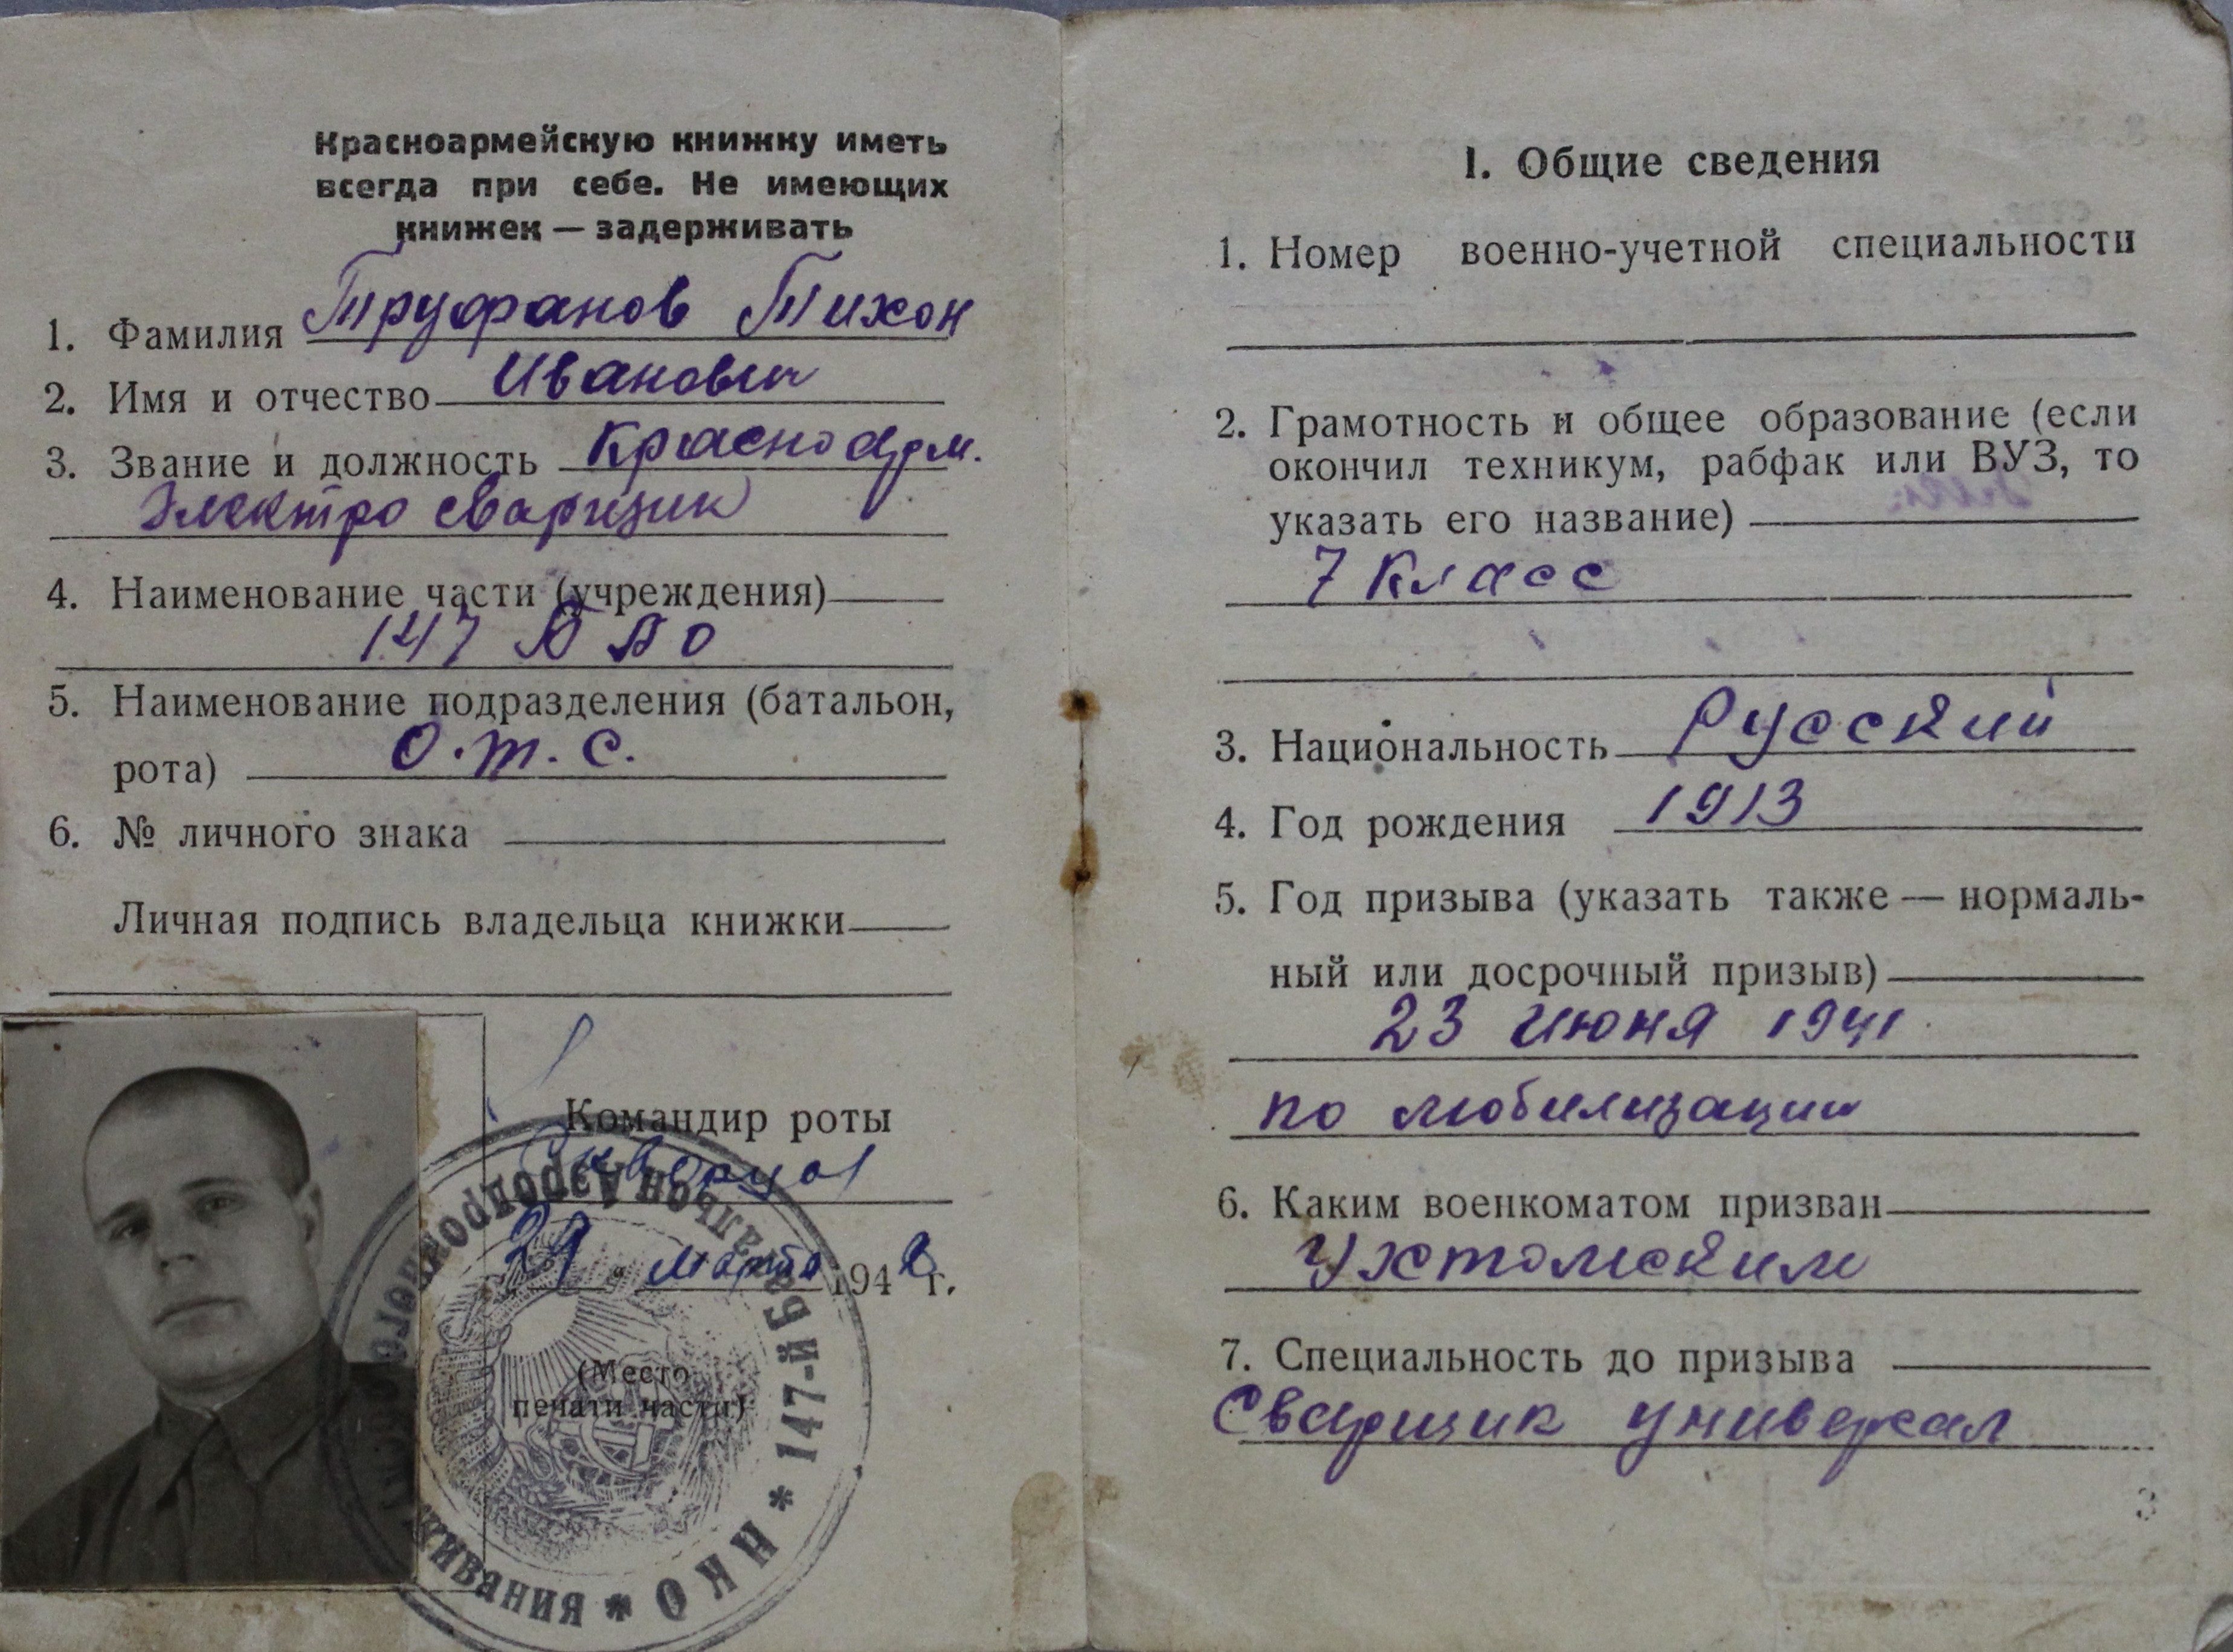 Красноармейскую книжку иметь
всегда при себе. Не имеющих
книжек — задерживать
1. Фамилия Труфанов Тихон
2. Имя и отчество Иванович
3. Звание и должность Красноарм.
Электро сварщик
4. Наименование части (учреждения)
147 БАО
5. Наименование подразделения (батальон,
рота) О.т.с.
6. № личного знака
Личная подпись владельца книжки
Командир роты
29 " марта 1942 г.
(Место
печати части)
* НКО * 147-й Батальон Аэродромного Обслуживания
I. Общие сведения
1. Номер военно-учетной специальности
2. Грамотность и общее образование (если
окончил техникум, рабфак или ВУЗ, то
указать его название)
7 класс
3. Национальность Русский
4. Год рождения 1913
5. Год призыва (указать также — нормаль-
ный или досрочный призыв)
23 июня 1941
по мобилизации
6. Каким военкоматом призван
Ухтомским
7. Специальность до призыва
Сварщик универсал
3